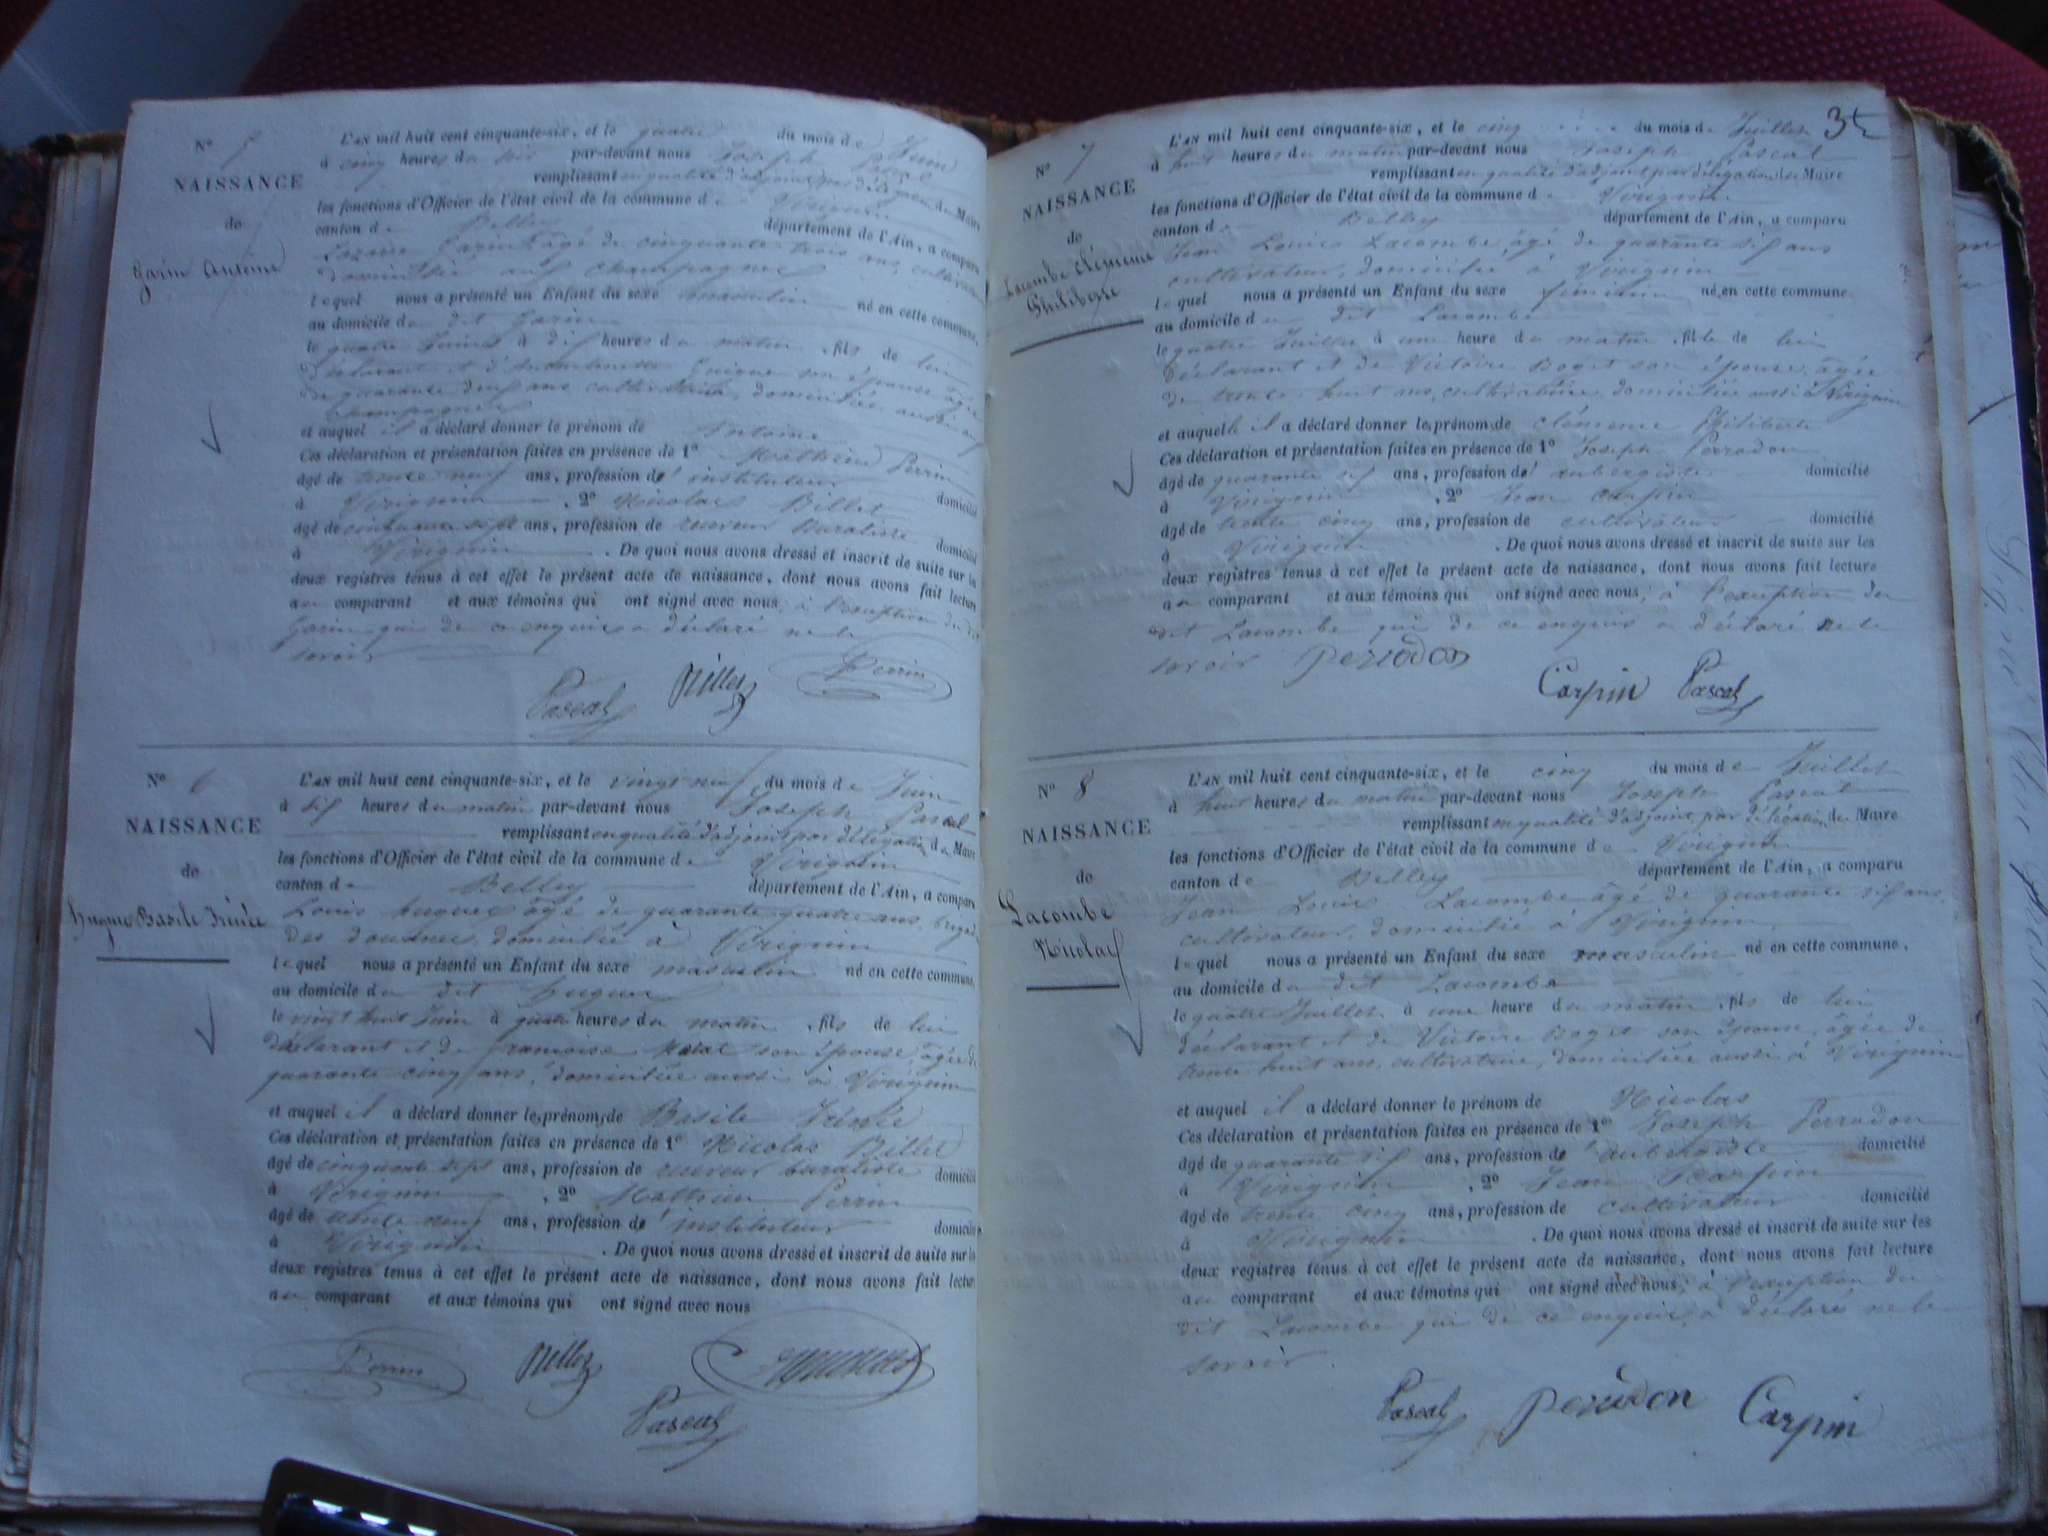 N° 5
NAISSANCE
de
Garin Antoine
L'AN mil huit cent cinquante-six, et le quatre du mois de Juin
à cinq heures du soir par-devant nous Joseph Pascal
remplissant en qualité d'adjoint par délégation du Maire
les fonctions d'Officier de l'état civil de la commune de Virignin
canton de Belley département de l'Ain, a comparu
Garin âgé de cinquante trois ans, cultivateur
domicilié aux Champagnes
lequel nous a présenté un Enfant du sexe masculin né en cette commune,
au domicile du dit Garin
le quatre Juin à dix heures du matin, fils de lui
déclarant et d' Guigue son épouse âgée
de quarante deux ans cultivatrice, domiciliée aussi aux
Champagnes
et auquel il a déclaré donner le prénom de Antoine
Ces déclaration et présentation faites en présence de 1° Mathieu Perrin
âgé de trente neuf ans, profession d'instituteur domicilié
à Virignin, 2° Nicolas Billet
âgé de cinquante sept ans, profession de receveur buraliste domicilié
à Virignin. De quoi nous avons dressé et inscrit de suite sur les
deux registres tenus à cet effet le présent acte de naissance, dont nous avons fait lecture
au comparant et aux témoins qui ont signé avec nous, à l'exception du dit
Garin qui de ce enquis a déclaré ne le
savoir
Pascal Billet Perrin
N° 6
NAISSANCE
de
Hugue Basile Irénée
L'AN mil huit cent cinquante-six, et le vingt neuf du mois de Juin
à six heures du matin par-devant nous Joseph Pascal
remplissant en qualité d'adjoint par délégation du Maire
les fonctions d'Officier de l'état civil de la commune de Virignin
canton de Belley département de l'Ain, a comparu
Louis âgé de quarante quatre ans,
des douanes, domicilié à Virignin
lequel nous a présenté un Enfant du sexe masculin né en cette commune,
au domicile du dit
le vingt huit Juin à quatre heures du matin, fils de lui
déclarant et de Françoise son épouse, âgée de
quarante cinq ans, domiciliée aussi à Virignin
et auquel il a déclaré donner les prénoms de Basile Irénée
Ces déclaration et présentation faites en présence de 1° Nicolas Billet
âgé de cinquante sept ans, profession de receveur buraliste domicilié
à Virignin, 2° Mathieu Perrin
âgé de trente neuf ans, profession d'instituteur domicilié
à Virignin. De quoi nous avons dressé et inscrit de suite sur les
deux registres tenus à cet effet le présent acte de naissance, dont nous avons fait lecture
au comparant et aux témoins qui ont signé avec nous
Perrin Billet
Pascal
N° 7
NAISSANCE
de
Lacombe Clémence
Philiberte
L'AN mil huit cent cinquante-six, et le cinq du mois de Juillet
à huit heures du matin par-devant nous Joseph Pascal
remplissant en qualité d'adjoint par délégation du Maire
les fonctions d'Officier de l'état civil de la commune de Virignin
canton de Belley département de l'Ain, a comparu
Jean Louis Lacombe, âgé de quarante six ans
cultivateur, domicilié à Virignin
lequel nous a présenté un Enfant du sexe féminin né en cette commune
au domicile du dit Lacombe
le quatre Juillet à une heure du matin, fille de lui
déclarant et de Victoire Boget son épouse, âgée
de trente huit ans, cultivatrice, domiciliée aussi à Virignin
et auquel il a déclaré donner les prénoms de Clémence Philiberte
Ces déclaration et présentation faites en présence de 1° Joseph Perrodon
âgé de quarante six ans, profession d'aubergiste domicilié
à Virignin, 2° Jean Carpin
âgé de trente cinq ans, profession de cultivateur domicilié
à Virignin. De quoi nous avons dressé et inscrit de suite sur les
deux registres tenus à cet effet le présent acte de naissance, dont nous avons fait lecture
au comparant et aux témoins qui ont signé avec nous, à l'exception du
dit Lacombe qui de ce enquis a déclaré ne le
savoir
Carpin Pascal
N° 8
NAISSANCE
de
Lacombe
Nicolas
L'AN mil huit cent cinquante-six, et le cinq du mois de Juillet
à huit heures du matin par-devant nous Joseph Pascal
remplissant en qualité d'adjoint par délégation du Maire
les fonctions d'Officier de l'état civil de la commune de Virignin
canton de Belley département de l'Ain, a comparu
Jean Louis Lacombe âgé de quarante six ans
cultivateur, domicilié à Virignin
lequel nous a présenté un Enfant du sexe masculin né en cette commune,
au domicile du dit Lacombe
le quatre Juillet à une heure du matin, fils de lui
déclarant et de Victoire Boget son épouse, âgée de
trente huit ans, cultivatrice, domiciliée aussi à Virignin
et auquel il a déclaré donner le prénom de Nicolas
Ces déclaration et présentation faites en présence de 1° Joseph Perrodon
âgé de quarante six ans, profession d'aubergiste domicilié
à Virignin, 2° Jean Carpin
âgé de trente cinq ans, profession de cultivateur domicilié
à Virignin. De quoi nous avons dressé et inscrit de suite sur les
deux registres tenus à cet effet le présent acte de naissance, dont nous avons fait lecture
au comparant et aux témoins qui ont signé avec nous, à l'exception du
dit Lacombe qui de ce enquis a déclaré ne le
savoir.
Pascal Carpin